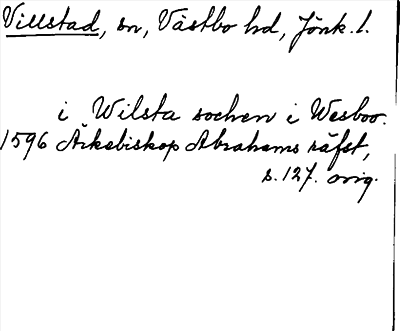 Villstad, sn, Västbo hd, Jönk. l.
i Wilsta sochen i Wesboo.
1596 Ärkebiskop Abrahams räfst,
s. 127. orig.